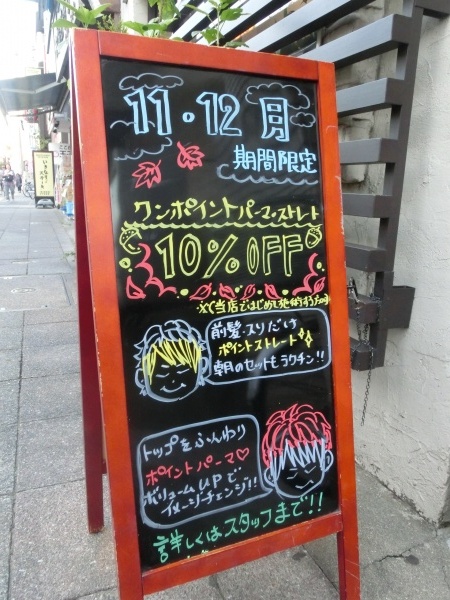 11・12月
期間限定
ワンポイントパーマ・ストレート
10%OFF
※当店ではじめて施術する方のみ
前髪・スソだけ
ポイントストレート
朝のセットもラクチン!!
トップをふんわり
ポイントパーマ♡
ボリュームUPで
イメージチェンジ!!
詳しくはスタッフまで!!